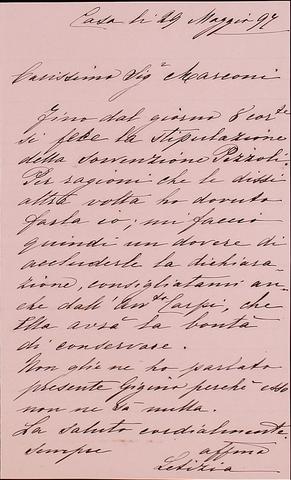 Casa li 29 Maggio 97
Carissimo Sigr Marconi
Fino dal giorno 8 corte
si fece la stipulazione
della Sovvenzione Pizzoli.
Per ragioni che le dissi
altra volta ho dovuto
farla io; mi faccio
quindi un dovere di
accluderle la dichiara-
zione, consigliatami an-
che dall'Avto Carpi, che
Ella avrà la bontà
di conservare.
Non gliene ho parlato
presente Gigino perchè esso
non ne sà nulla.
La saluto cordialmente.
sempre affma
Letizia